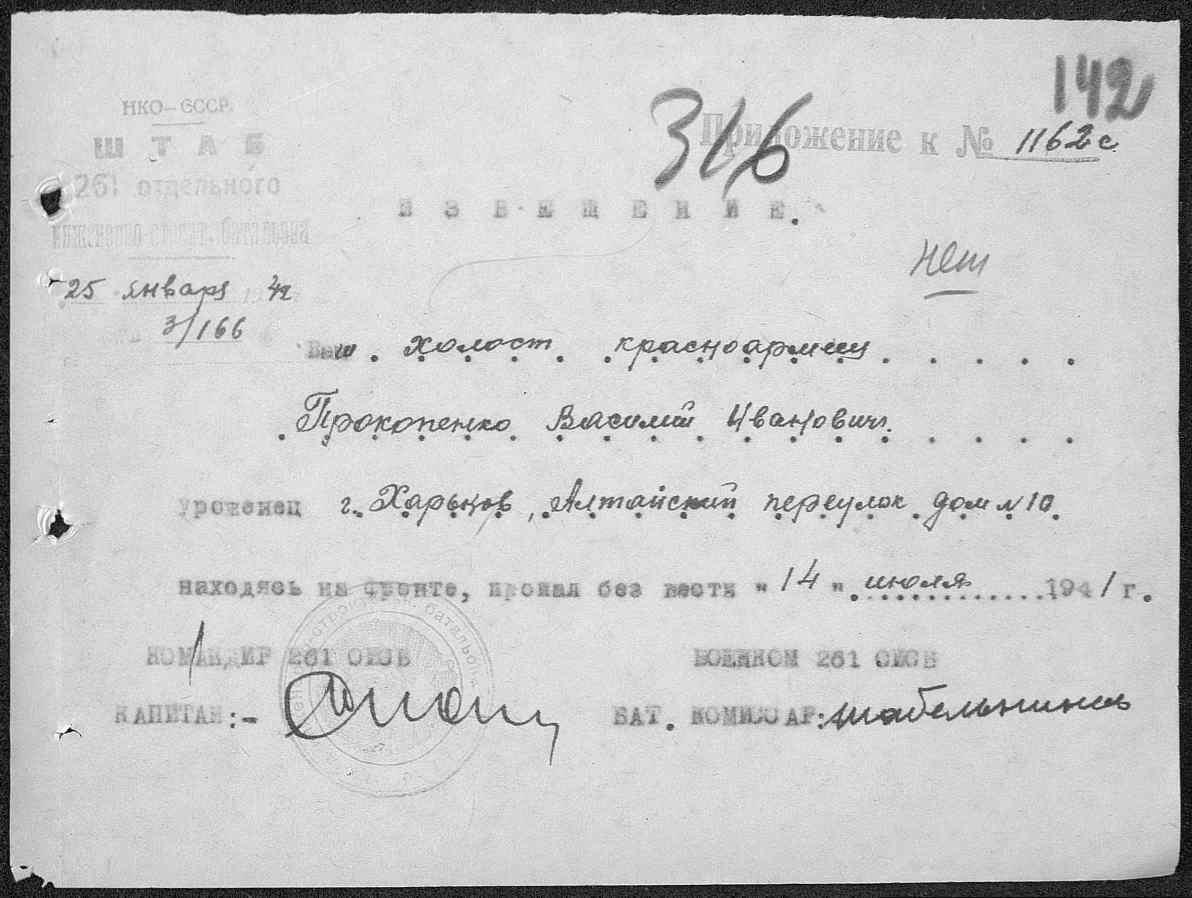 142
НКО-СССР.
ШТАБ
261 отдельного
316
Приложение к № 1162с
ИЗВЕЩЕНИЕ.
нет
25 января 42
3/166
Ваш холост красноармеец
Прокопенко Василий Иванович.
уроженец г. Харьков, Алтайский переулок дом №10.
находясь на фронте, пропал без вести "14" июля 1941 г.
КОМАНДИР 261 ОИСБ
ВОЕНКОМ 261 ОИСБ
КАПИТАН:-
БАТ. КОМИССАР: Шабельников